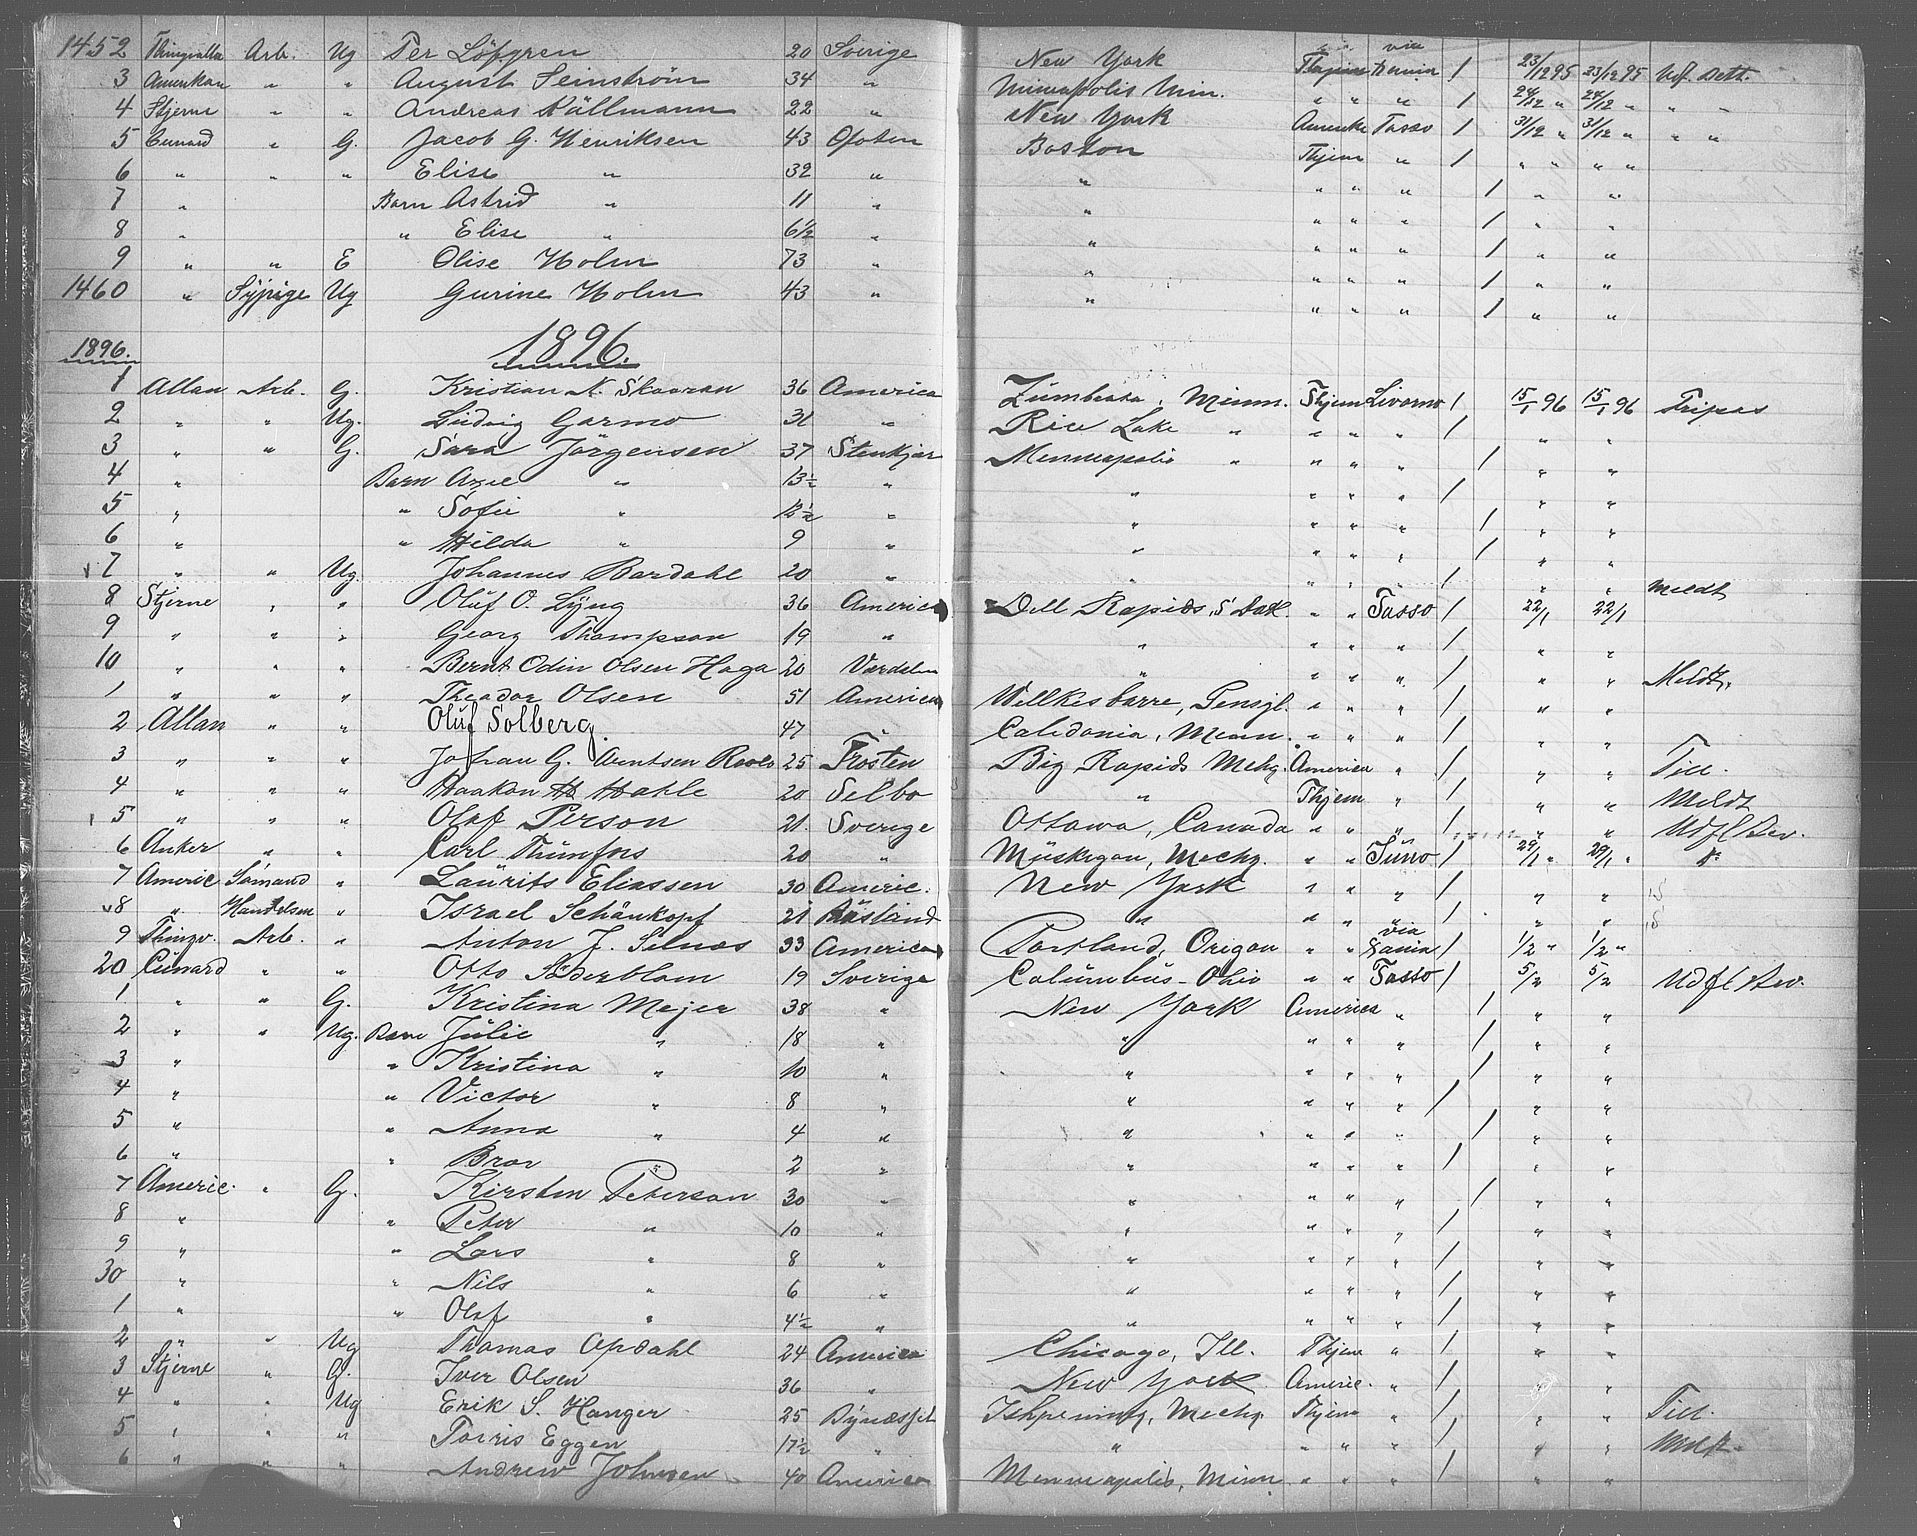 1452 Thingvalla Arb. Ug Per Löfgren 20 Sverige New York Thjem via 1 23/12 95 23/12 95 Udf. Beth.
3 Amerikan " " August Seinström 34 " Minneapolis Min. " " " 1 24/12 " 24/12 " " "
4 Stjerne " " Andreas Källmann 22 " New York Amerika Tasso 1 31/12 " 31/12 " " "
5 Cunard " G. Jacob G. Henriksen 43 Ofoten Boston Thjem " 1 " " " "
6 " " " Elise " 32 " " " " " 1 " "
7 " Barn Astrid " 11 " " " " " 1 " "
8 " " Elise " 6 1/2 " " " " " 1 " "
9 " " E Olise Holm 73 " " " " " 1 " "
1460 " Sypige Ug Gurine Holm 43 " " " " " 1 " "
1896. 1896.
1 Allan Arb. G. Kristian N. Skaaran 36 America Zumbrota, Minn. Thjem Livorno 1 15/1 96 15/1 96 Tripas
2 " " Ug. Ludvig Garmo 31 " Rice Lake " " " " 1 " "
3 " " G. Sara Jörgensen 37 Stenkjær Minneapolis " " " " 1 " "
4 " Barn Axel " 13 1/2 " " " " " 1 " "
5 " " Sofie " 12 1/2 " " " " " 1 " "
6 " " Hilda " 9 " " " " " 1 " "
7 " " Ug. Johannes Bardahl 20 " " " " " 1 " " Meldt
8 Stjerne " " Oluf O. Lyng 36 America Dell Rapids, S Dak. " " Tasso 1 22/1 22/1
9 " " " Georg Thompson 19 " " " " " 1 " "
10 " " " Bernt Odin Olsen Haga 20 Værdalen " " " " 1 " " Meldt.
1 " " " Theodor Olsen 51 America Willkesbarre, Pensyl. " " " 1 " "
2 Allan " " Oluf Solberg. 47 " Caledonia, Menn. " " " 1 " "
3 " " " Johan G. Arntsen 25 Frosten Big Rapids Mchg. America " 1 " " Till.
4 " " " Haakon H Hahle 20 Selbo " Thjem " 1 " " Meldt
5 " " " Olaf Person 21. Sverige Ottawa, Canada " " " 1 " " Udfl Bev.
6 Anker " " Carl Thünfors 20 " Müskegon, Mechg. " " Juno 1 29/1 " 29/1 "
7 Americ Sömand " Laurits Eliassen 30 Americ. New York " " " 1 " "
8 " " Israel Schänkopf 21 Rüsland " " " " 1 " "
9 Thingv. Arb. " Anton J. Selnæs 33 America Portland, Oregon " " via 1 1/2 " 1/2 "
20 Cünard " " Otto Söderblom 19 Sverige Columbus - Ohio " " Tasso 1 5/2 5/2 Udfl Bev.
1 " " G. Kristina Mejer 38 " New York America " 1 " "
2 " " Ug. Barn Julie " 18 " " " " " 1 " "
3 " " Kristina " 10 " " " " " 1 " "
4 " " Victor " 8 " " " " " 1 " "
5 " " Anna " 4 " " " " " 1 " "
6 " " Bror " 2 " " " " " 1 " "
7 Americ. " G. Kirsten Peterson 30 " " " " " 1 " "
8 " " Peter " 10 " " " " " 1 " "
9 " " Lars " 8 " " " " " 1 " "
30 " " Nils " 6 " " " " " 1 " "
1 " " Olaf " 4 1/2 " " " " " 1 " "
2 " " Ug Thomas Opdahl 24 America Chicago, Ill. Thjem " 1 " "
3 Stjerne " G. Iver Olsen 36 " New York Americ. " 1 " "
4 " " Ug Erik S. Hanger 25 Bynesset Ishpeming, Mechg. Thjem " 1 " " Till.
5 " " " Torris Eggen 17 1/2 " " " " " 1 " " Meldt.
6 " " " Andrew Johnsen 40 America Menneapolis, Minn " " " 1 " "